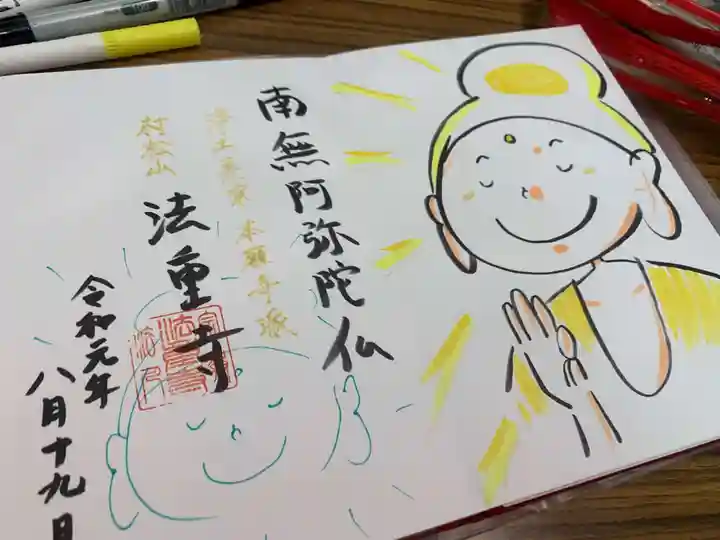 南無阿弥陀仏
浄土真宗 本願寺派
村松山
法重寺
令和元年
八月十九日